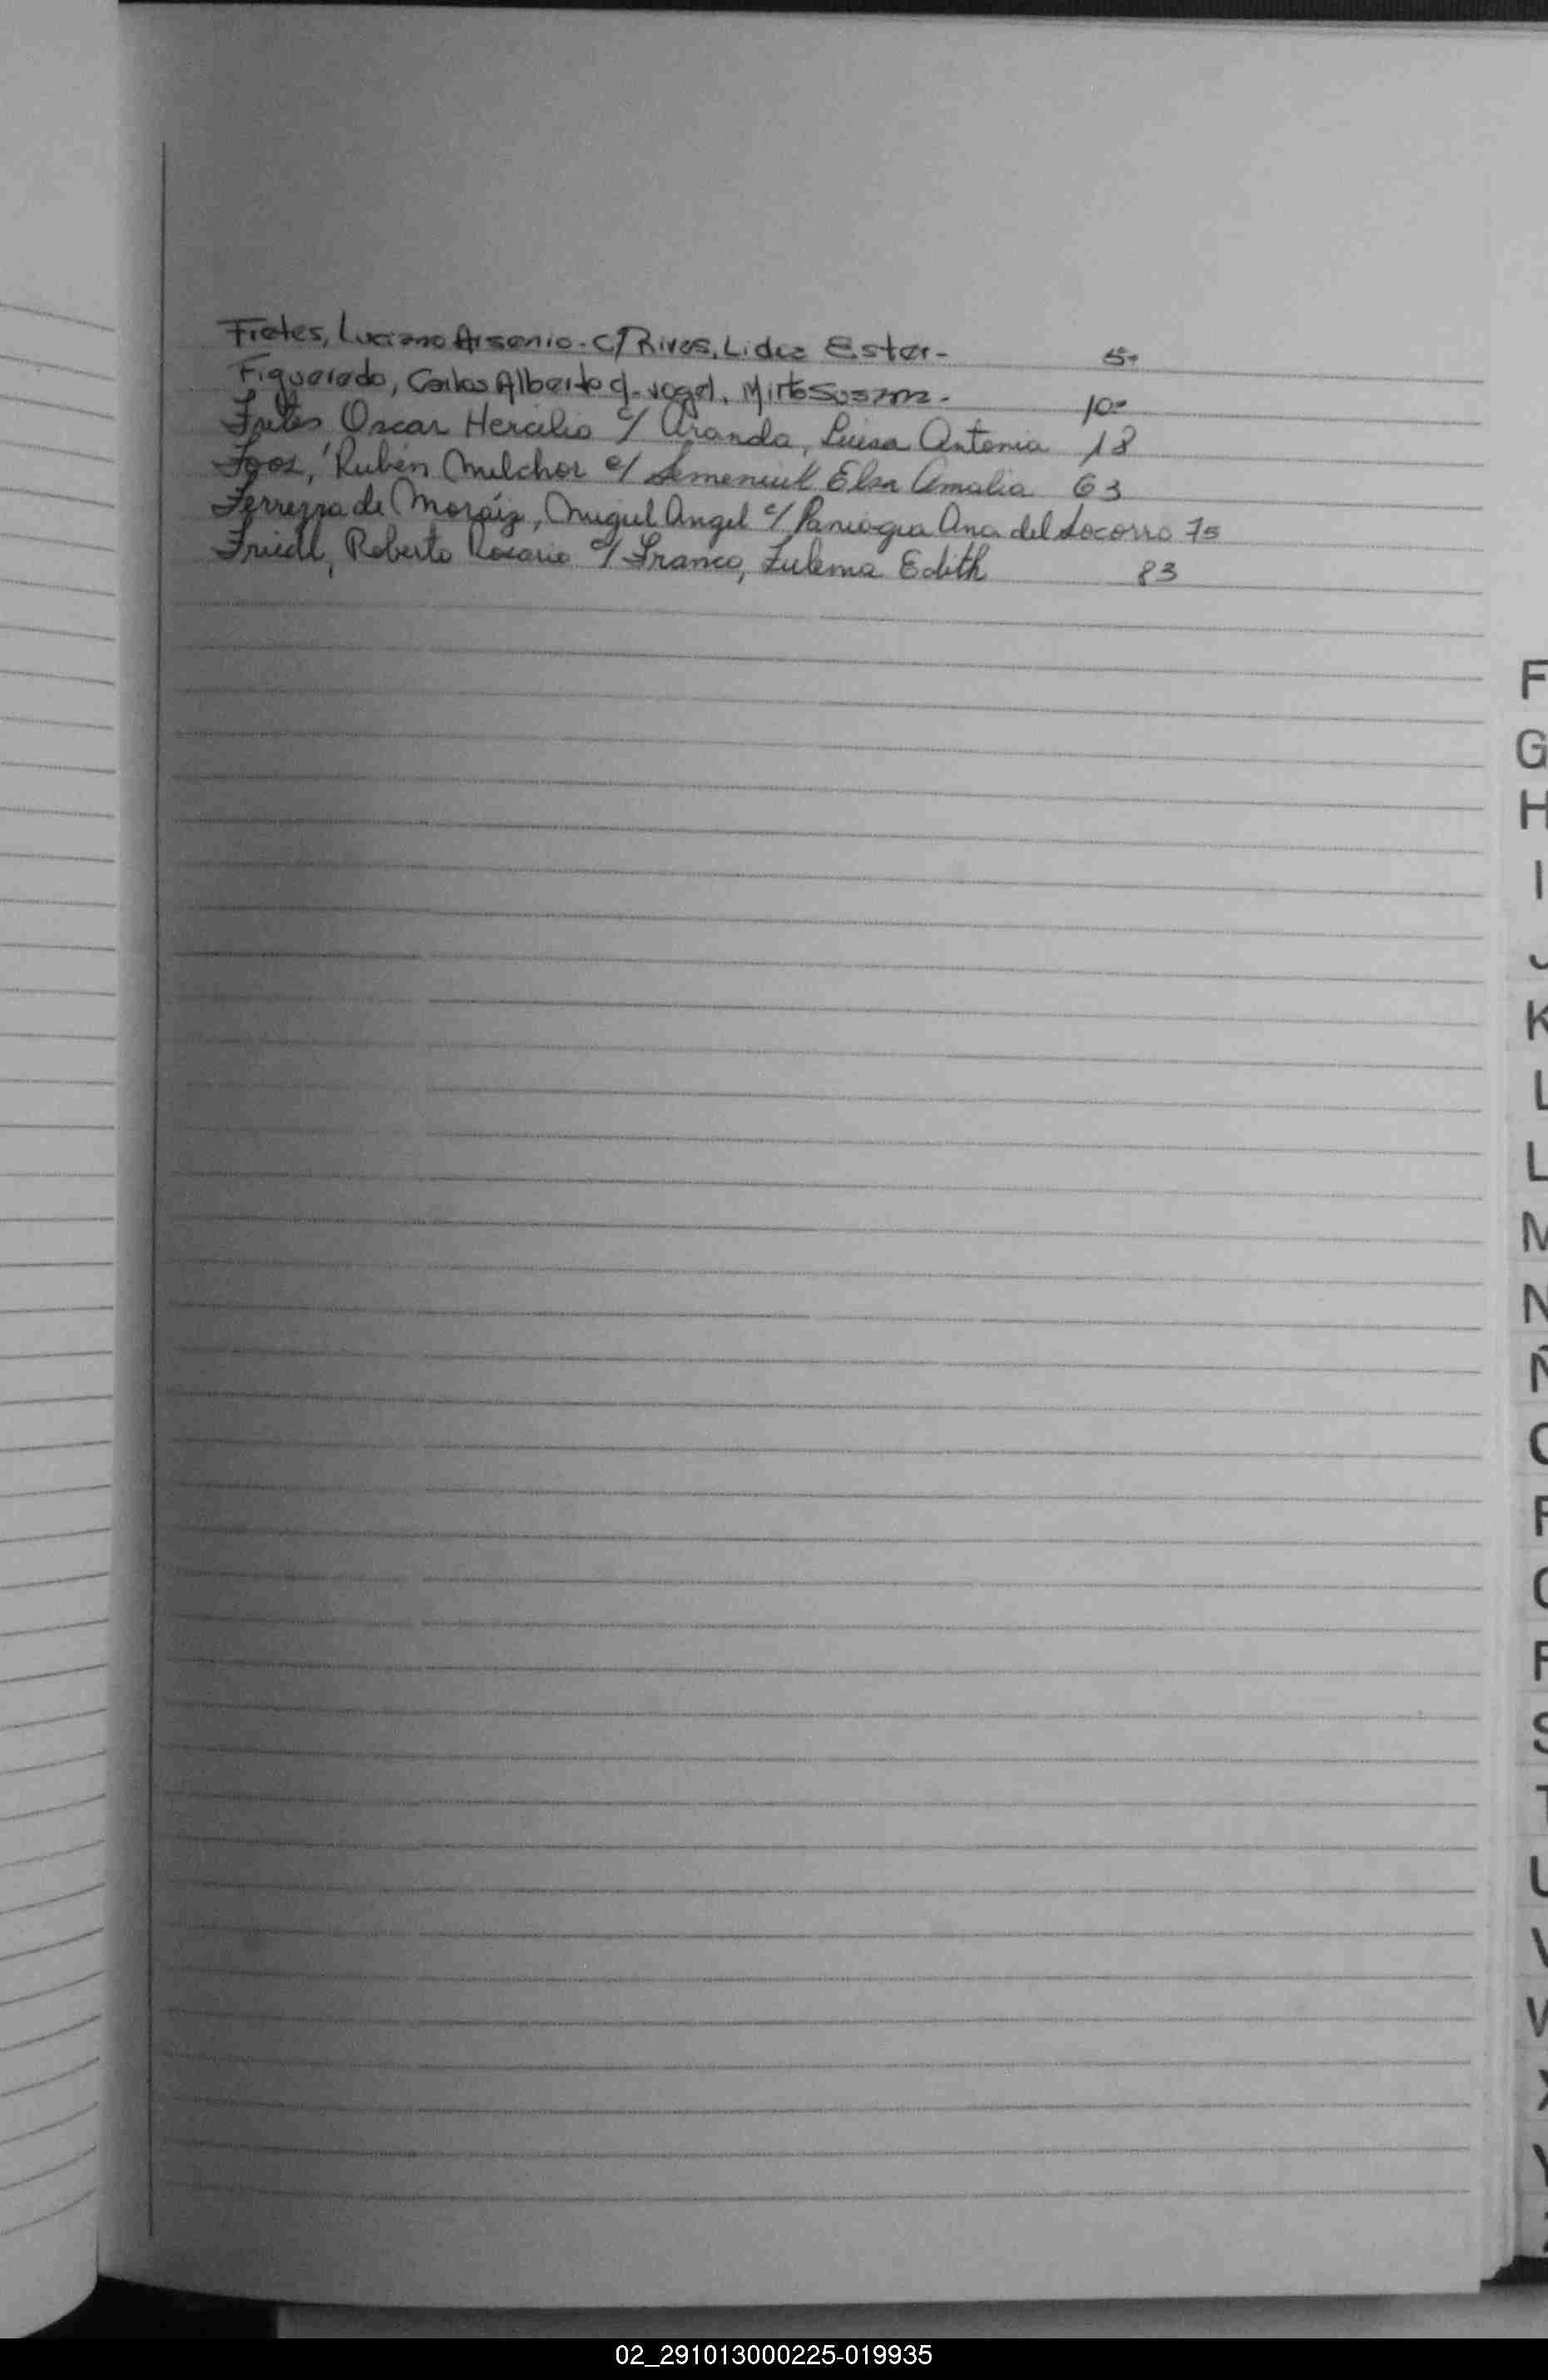 Fretes, Luciano Arsenio. c/ Rivas, Lidia Ester- 5-
Figueredo, Carlos Alberto c/. Vogel, Mirta Susana. 10-
Fretes Oscar Hercilio c/ Aranda, Luisa Antonia 18
Rubén Melchor c/ Semeniuk Elsa Amalia 63
Ferreyra de Moráiz, Miguel Angel c/ Paniagua Ana del Socorro 75
Friedl, Roberto Rosario c/ Franco, Zulema Edith 83
F
G
H
I
J
K
L
L
M
N
Ñ
O
P
Q
R
S
T
U
V
W
X
Y
02_291013000225-019935